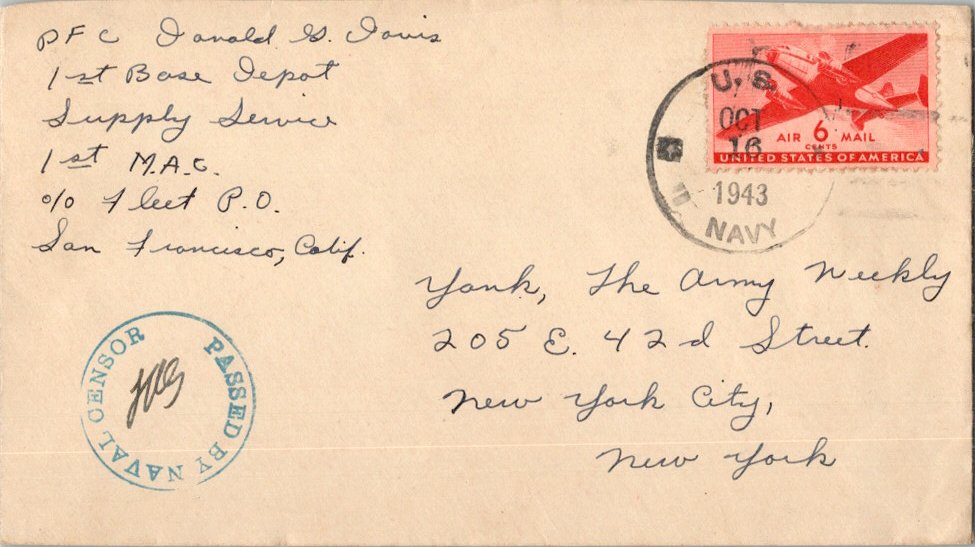 PFC Donald G. Davis
1st Base Depot
Supply Service
1st M.A.C.
c/o Fleet P.O.
San Francisco, Calif.
U.S.
OCT
16
1943
NAVY
AIR 6 MAIL
CENTS
UNITED STATES OF AMERICA
Yank, The Army Weekly
205 E. 42d Street.
New York City,
New York
PASSED BY NAVAL CENSOR